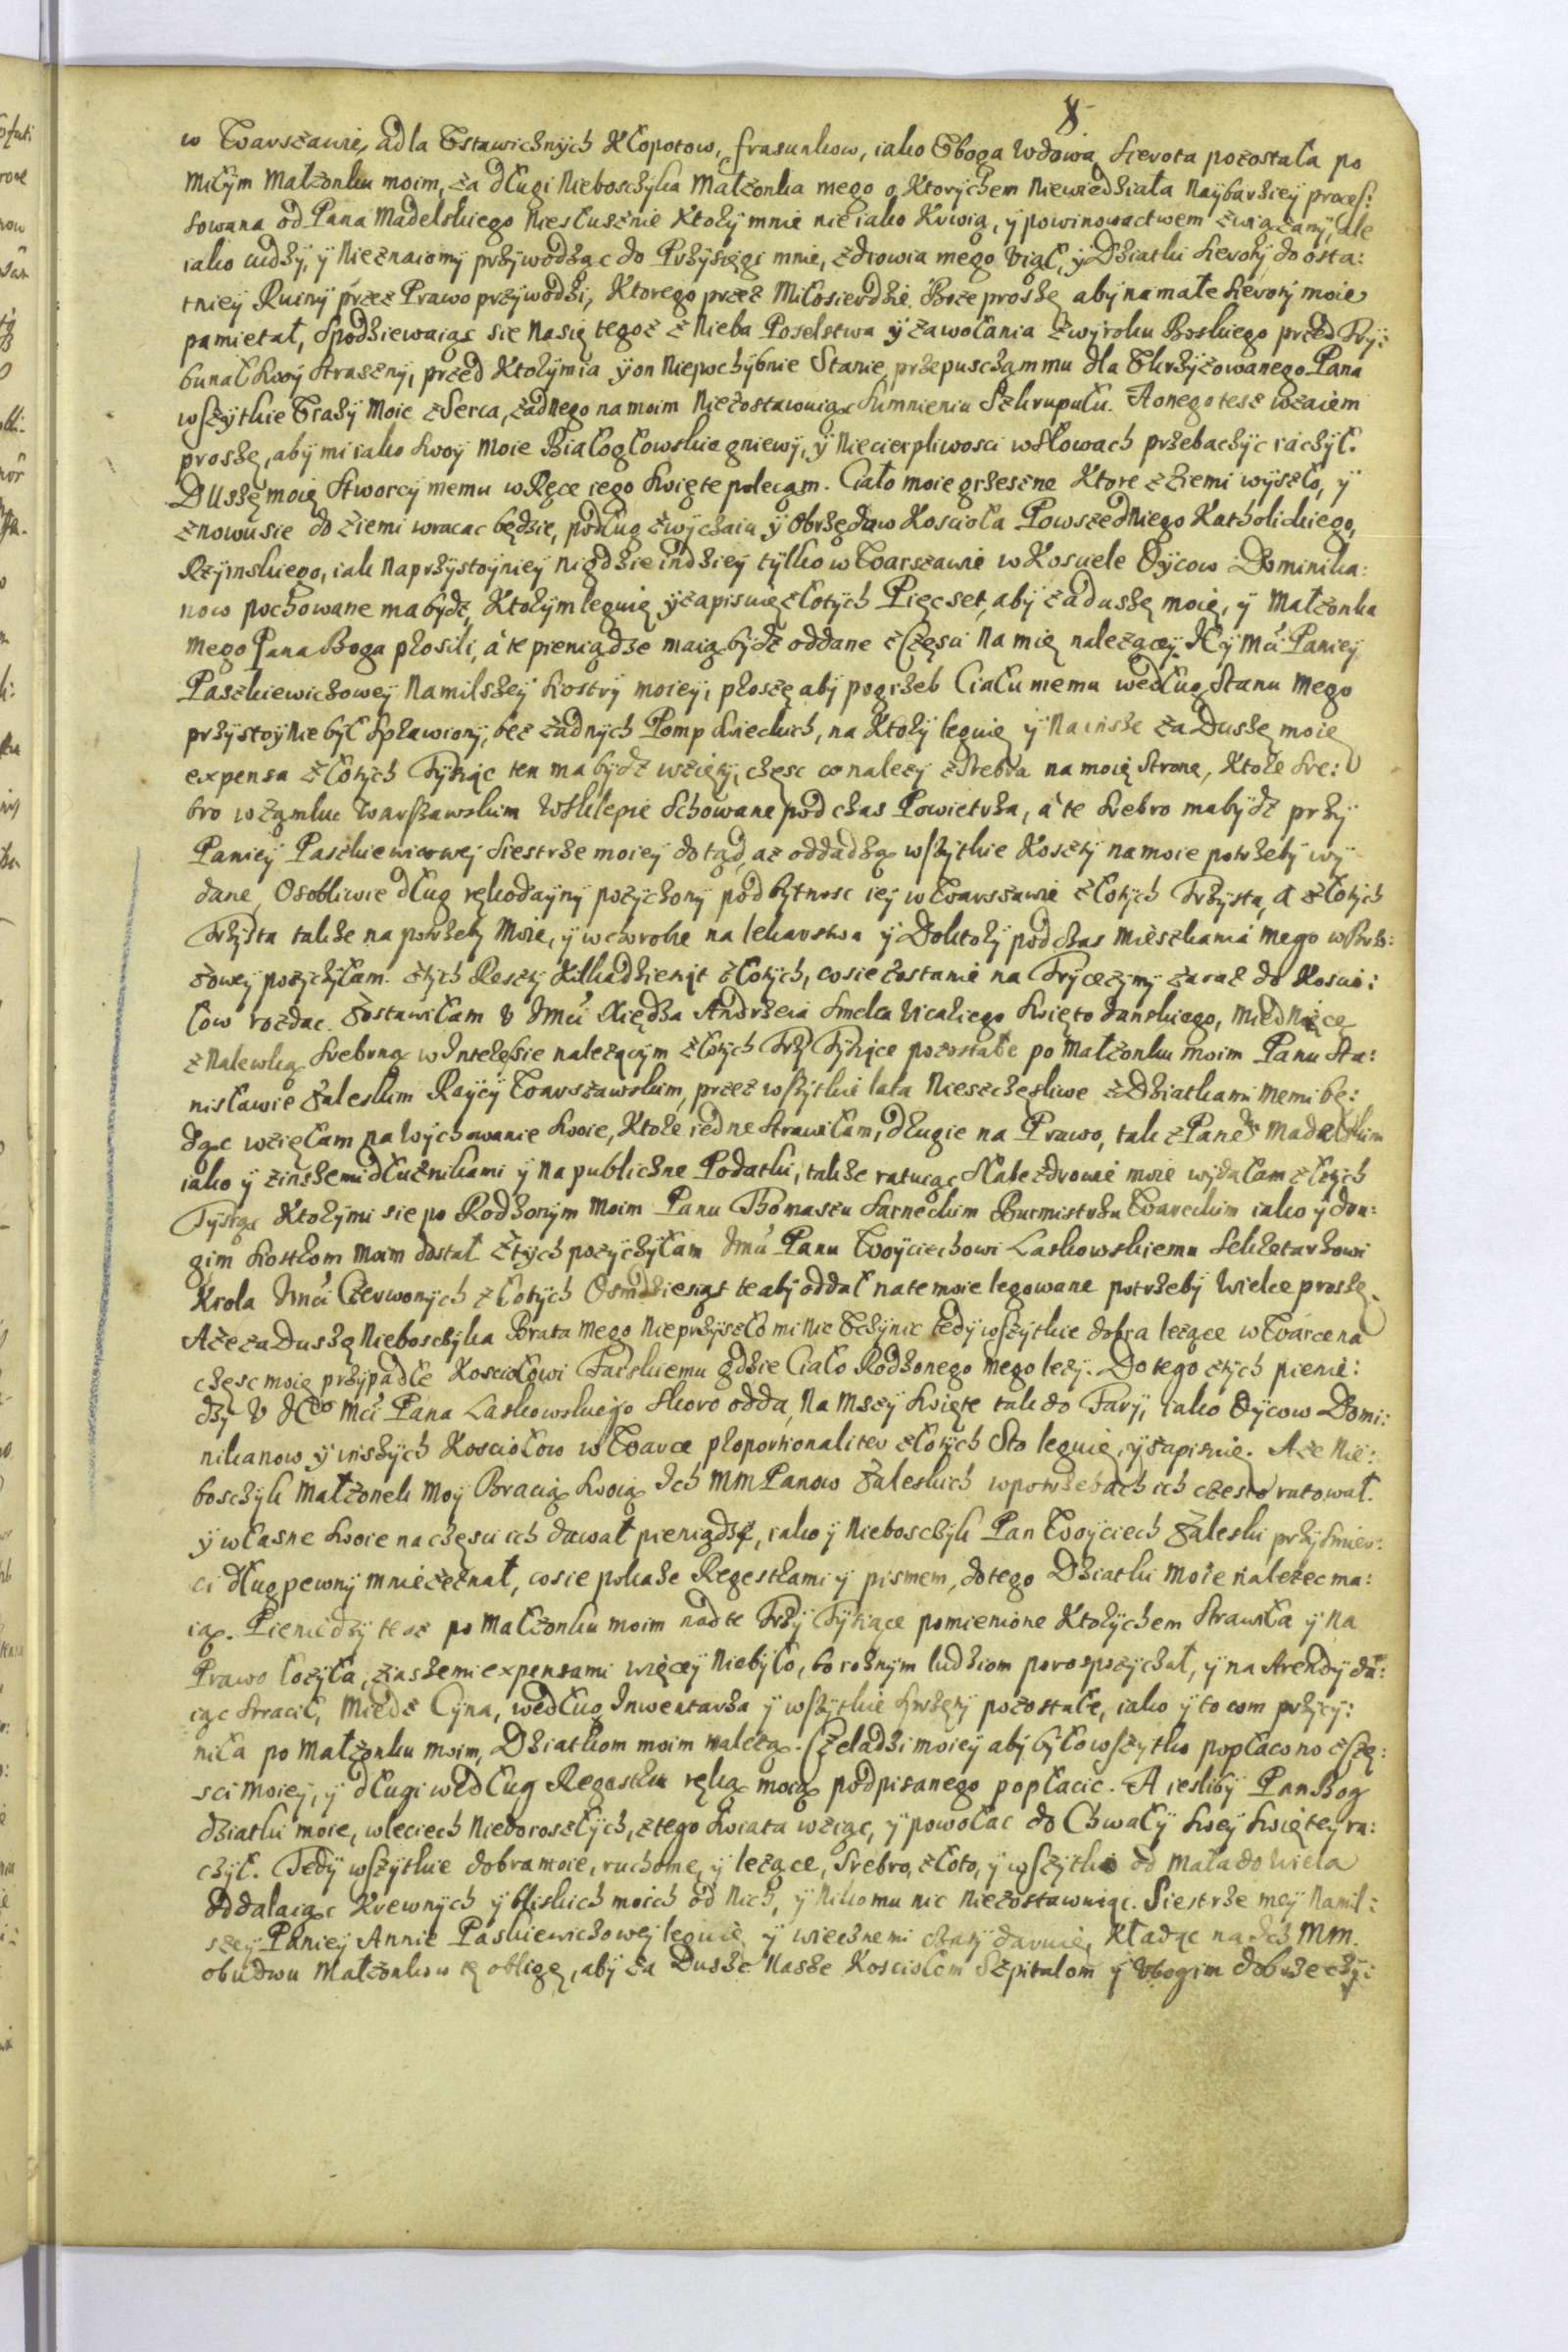 8
w Warszawie, a dla Ustawicznych Kłopotow, frasunkow, iako Uboga Wdowa Sierota pozostała po
Miłym Małzonku moim, za długi Nieboszczyka Małzonka mego o Ktorychem Niewiedziała Naybarziey proces:
sowana od Pana Madelskiego Niesłusznie Ktory mnie nie iako Krwią, y powinowactwem związany, Ale
iako cudzy, y Nieznaiomy przywodząc do Przysięgi mnie, zdrowia mego Uiął, y Dziatki Sieroty do osta:
tniey Ruiny przez Prawo przywodzi, Ktorego przez Miłosierdzie Boze proszę aby na małe Sieroty moie
pamietał, Spodziewaiąc sie Na się tegoz z Nieba Poselstwa y zawołania z wyroku Boskiego przed Try:
bunał Swoy Straszny, przed Ktorym ia y on Niepochybnie Stanie, przepuszczam mu dla Ukrzyzowanego Pana
wszytkie Urazy Moie z Serca, zadnego na moim Niezostawuiąc Sumnieniu Szkrupułu. A onego tesz wzaiem
proszę, aby mi iako Swoy Moie Białogłowskie gniewy, y Niecierpliwosci w Słowach przebaczyc raczył.
Duszę moię Stworcy memu w Ręce iego Swięte polecam. Ciało moie grzeszne Ktore z Ziemi wyszło, y
znowu sie do Ziemi wracac będzie, podług zwyczaiu y Obrzędow Koscioła Powszedniego Katholickiego,
Rzymskiego, iak Naprzystoyniey nigdzie indziey tylko w Warszawie w Kosciele Oycow Dominika:
now pochowane ma bydz, Ktorym leguię y zapisuię złotych Pięcset, aby za duszę moię, y Małzonka
mego Pana Boga prosili, á te pieniądze maią bydz oddane z Częsci Na mię nalezącey. Iey Mci Paniey
Paszkiewiczowey Namilszey Siostry moiey, proszę aby pogrzeb Ciału memu według Stanu Mego
przystoynie był Sprawiony, bez zadnych Pomp Swieckich, na Ktory leguię y Na insze za Duszę moię
expensa złotych Tysiąc ten ma bydz wzięty, częsc co nalezy z Srebra na moię Stronę, Ktore Sre:
bro w zamku Warszawskim w Sklepie Schowane pod czas Powietrza, á te Srebro ma bydz przy
Paniey Paszkiewiczowej Siestrze moiey dotąd, az oddadzą wszytkie Koszty na moie potrzeby wy
dane, Osobliwie dług rękodayny pozyczony pod bytnosc iey w Warszawie złotych Trzysta, A złotych
Trzysta takze na potrzeby Moie, y w chorobie na lekarstwa y Doktory pod czas Mieszkania Mego w
zowey pozyczyłam. z tych Reszty Kilkadziesiąt złotych, co sie zostanie na Trycezymy zaraz do Koscio:
łow rozdac. Zostawiłam U Imci Xiędza Andrzeia Smelca Vicariego Swięto Jańskiego, Miednicę
z Nalewką Srebrną w Interessie nalezącym złotych Trzy Tysiące pozostałe po Małzonku moim Panu Sta:
nisławie Zaleskim Raycy Warszawskim, przez wszytkie lata Nieszczęsliwe z Dziatkami Memi bę:
dąc wzięłam na Wychowanie Swoie, Ktore iedne Strawiłam, drugie na Prawo, tak z Panem Madelskim
iako y z inszemi dłuznikami y Na publiczne Podatki, takze ratuiąc Słabe zdrowie moie wydałam złotych
Tysiąc Ktorymi sie po Rodzonym Moim Panu Thomaszu Sarneckim Burmistrzu Wareckim iako y dru:
gim Siostrom Moim dostał z tych pozyczyłam Imci Panu Woyciechowi Laskowskiemu Sekretarzowi
Krola Imci Czerwonych złotych Osmdziesiąt te aby oddał na te moie legowane potrzeby Wielce proszę.
A ze za Duszę Nieboszczyka Brata Mego Nieprzyszło mi Nic Uczynic tedy wszytkie dobra lezące w Warce na
częsc moię przypadłe Kosciołowi Farskiemu gdzie Ciało Rodzonego Mego lezy. Do tego z tych pienię:
dzy U Iego Mci Pana Laskowskiego Skoro odda, Na Mszy Swięte tak do Fary, iako Oycow Domi:
nikanow y inszych Kosciołow w Warce proportionaliter złotych Sto leguię, y zapisuię. A ze Nie:
boszczyk Małzonek Moy Bracią Swoią Ich MM Panow Zaleskich w potrzebach ich często ratował.
y własne Swoie na częsci ich dawał pieniądze, iako y Nieboszczyk Pan Woyciech Zaleski przy Smier:
ci dług pewny mnie zeznał, co sie pokaze Regestrami y pismem, do tego Dziatki Moie nalezec ma:
ią. Pieniedzy tesz po Małzonku moim nad te Trzy Tysiące pomienione Ktorychem Strawiła y Na
Prawo łozyła, z inszemi expensami więcey Niebyło, bo roznym ludziom porospozyczał, y na Arendy da:
iąc Stracił, Miedz Cyna, według Inwentarza y wszytkie Sprzęty pozostałe, iako y to com przyczy:
niła po Małzonku moim, Dziatkom moim nalezą. Czeladzi moiey aby było wszytko popłacono z Czę:
sci Moiey, y długi według Regestru ręką moią podpisanego popłacic. A iesliby Pan Bog
dziatki moie, w leciech Niedoroszłych, z tego Swiata wziąc, y powołac do Chwały Swey Swiętey ra:
czył. Tedy wszytkie dobra moie, ruchome, y lezące, Srebro, złoto, y wszytko od Mała do Wiela
Oddalaiąc Krewnych y bliskich moich od Nich, y Nikomu nic Niezostawuiąc. Siestrze mey Namil:
szey Paniey Annie Paskiewiczowej leguię y wiecznemi czasy daruię, Kładąc na Ich MM.
obudwu Małzonkow tę obligę, aby za Dusze Nasze Kosciołom Szpitalom y Ubogim dobrze czy: